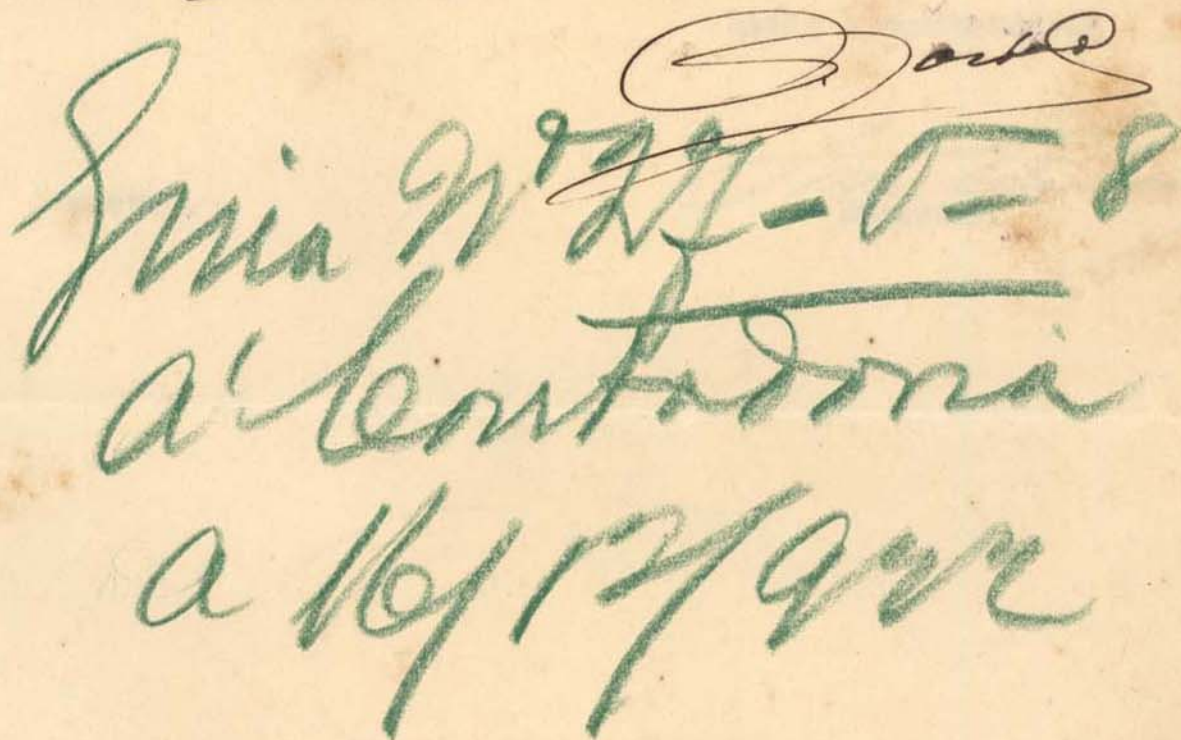 Guia Nº 27 - 5 - 8
á Contadoria
a 16/12/922